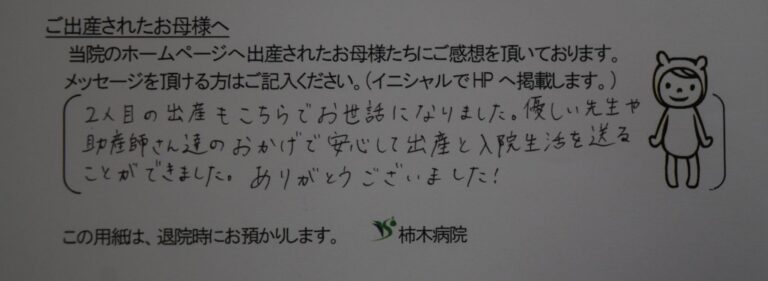 ご出産されたお母様へ
当院のホームページへ出産されたお母様たちにご感想を頂いております。
メッセージを頂ける方はご記入ください。(イニシャルでHPへ掲載します。)
2人目の出産もこちらでお世話になりました。優しい先生や
助産師さん達のおかげで安心して出産と入院生活を送る
ことができました。ありがとうございました!
この用紙は、退院時にお預かりします。 柿木病院